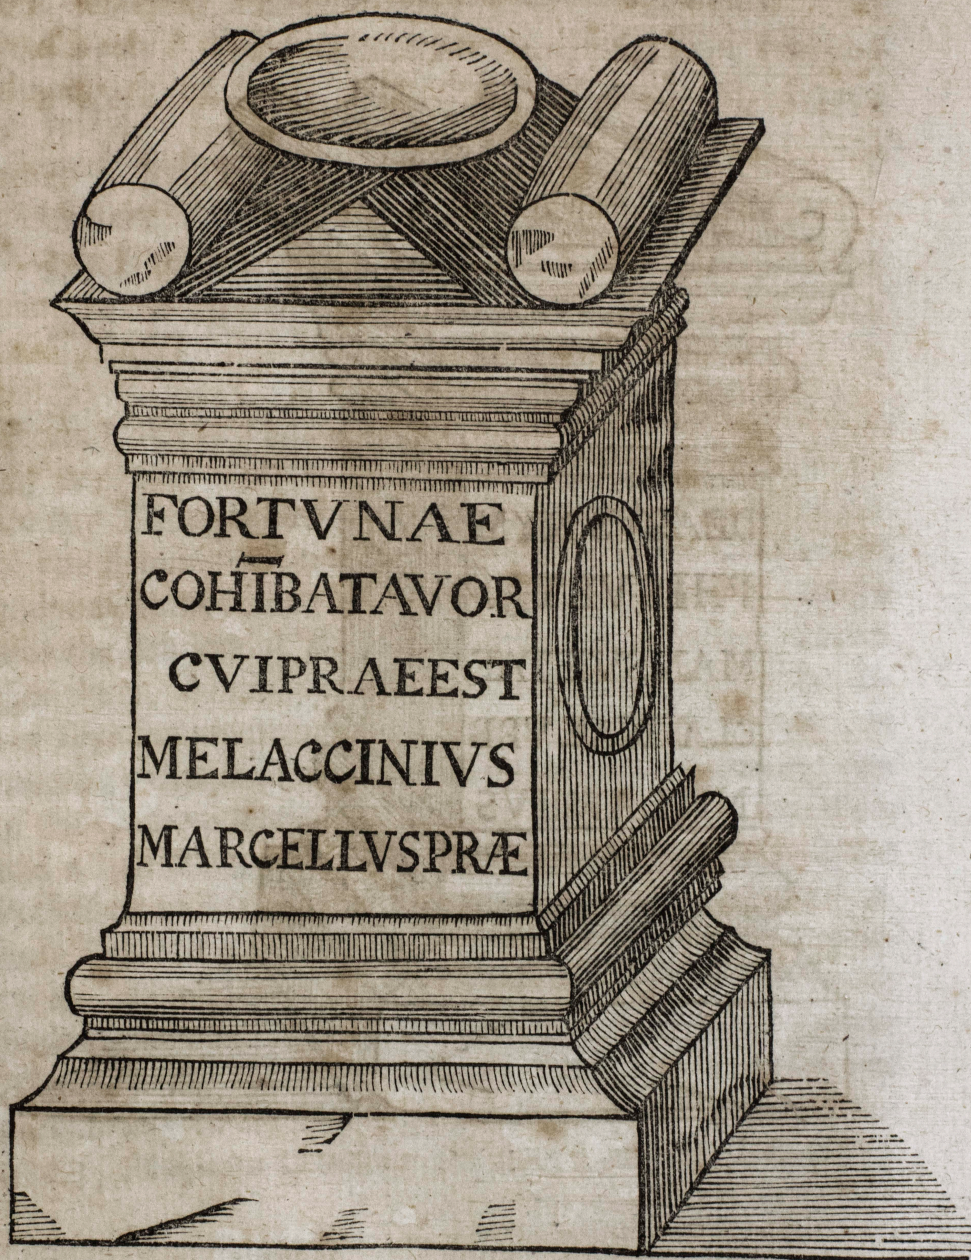 FORTVNAE
COHI̅BATAVOR
CVIPRAEEST
MELACCINIVS
MARCELLVSPRÆ